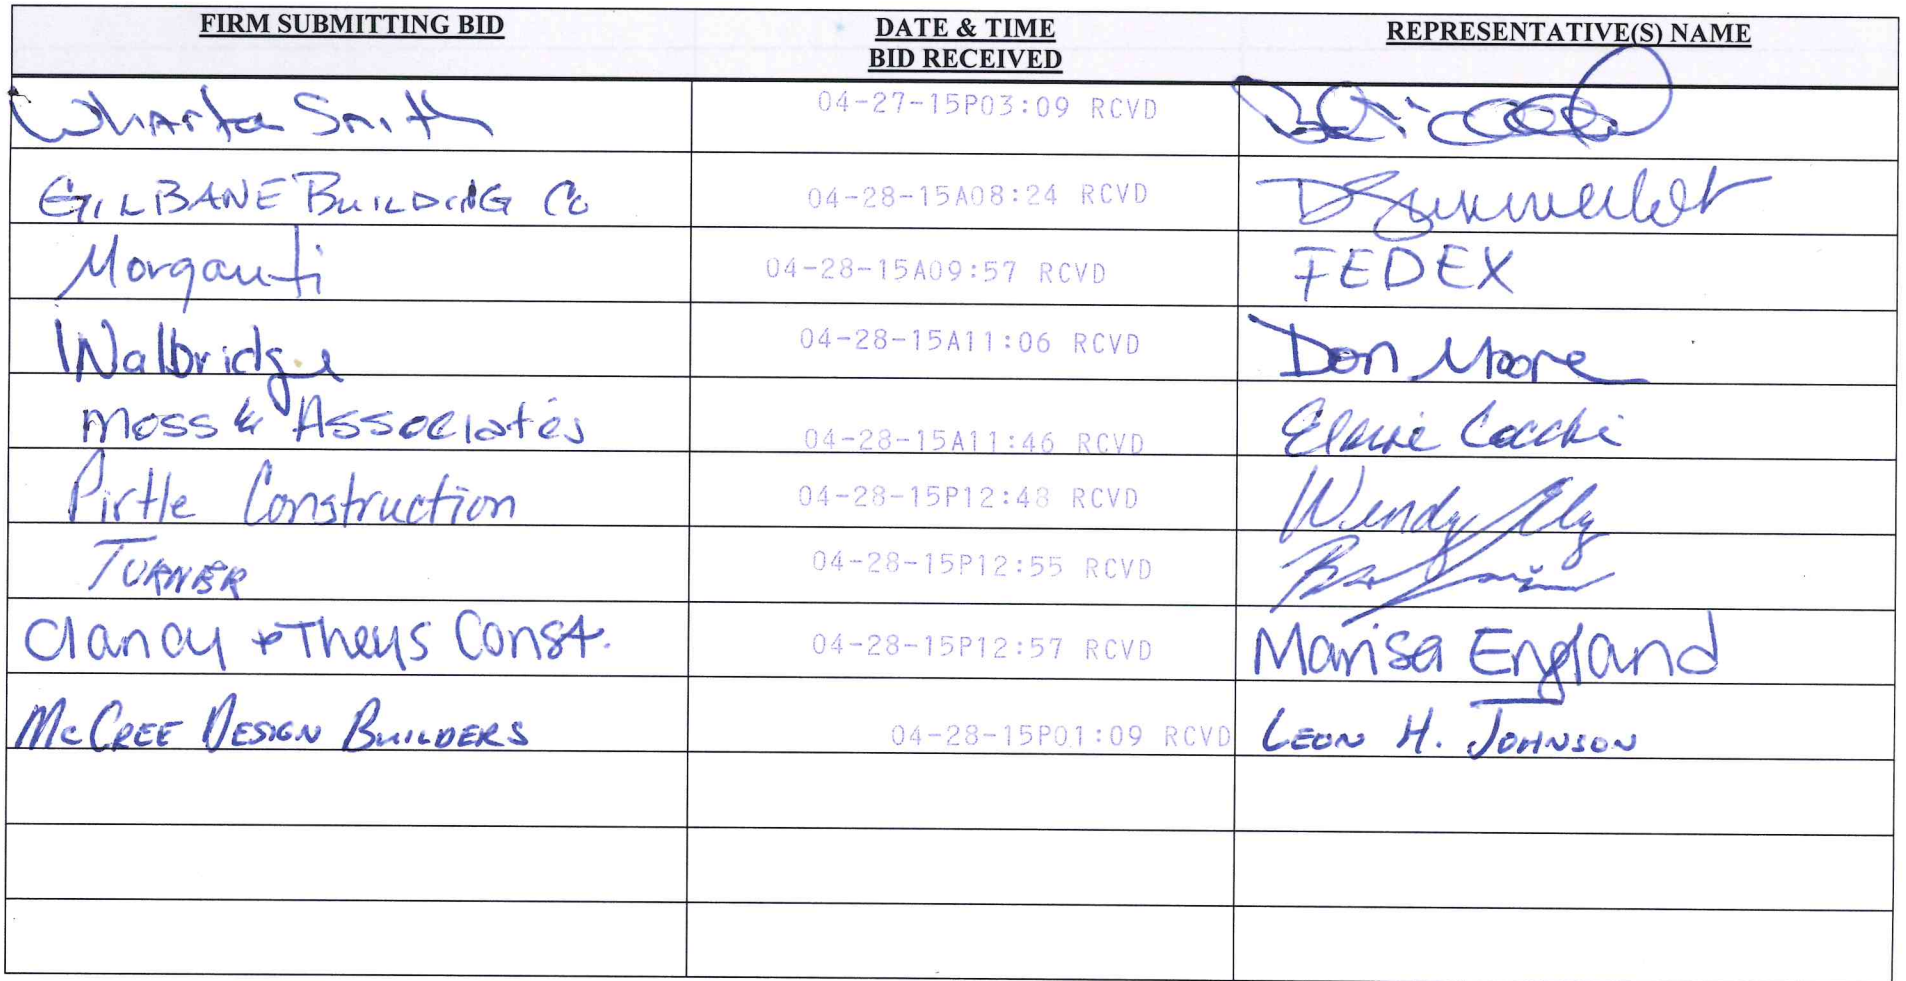 FIRM SUBMITTING BID
DATE & TIME
BID RECEIVED
REPRESENTATIVE(S) NAME
Wharton Smith 04-27-15P03:09 RCVD
GILBANE BUILDING Co 04-28-15A08:24 RCVD
Morganti 04-28-15A09:57 RCVD FEDEX
Walbridge 04-28-15A11:06 RCVD Don Moore
Moss & Associates 04-28-15A11:46 RCVD Elaine
Pirtle Construction 04-28-15P12:48 RCVD Wendy Ely
TURNER 04-28-15P12:55 RCVD
Clancy + Theys Const. 04-28-15P12:57 RCVD Marisa England
McCREE DESIGN BUILDERS 04-28-15P01:09 RCVD LEON H. JOHNSON